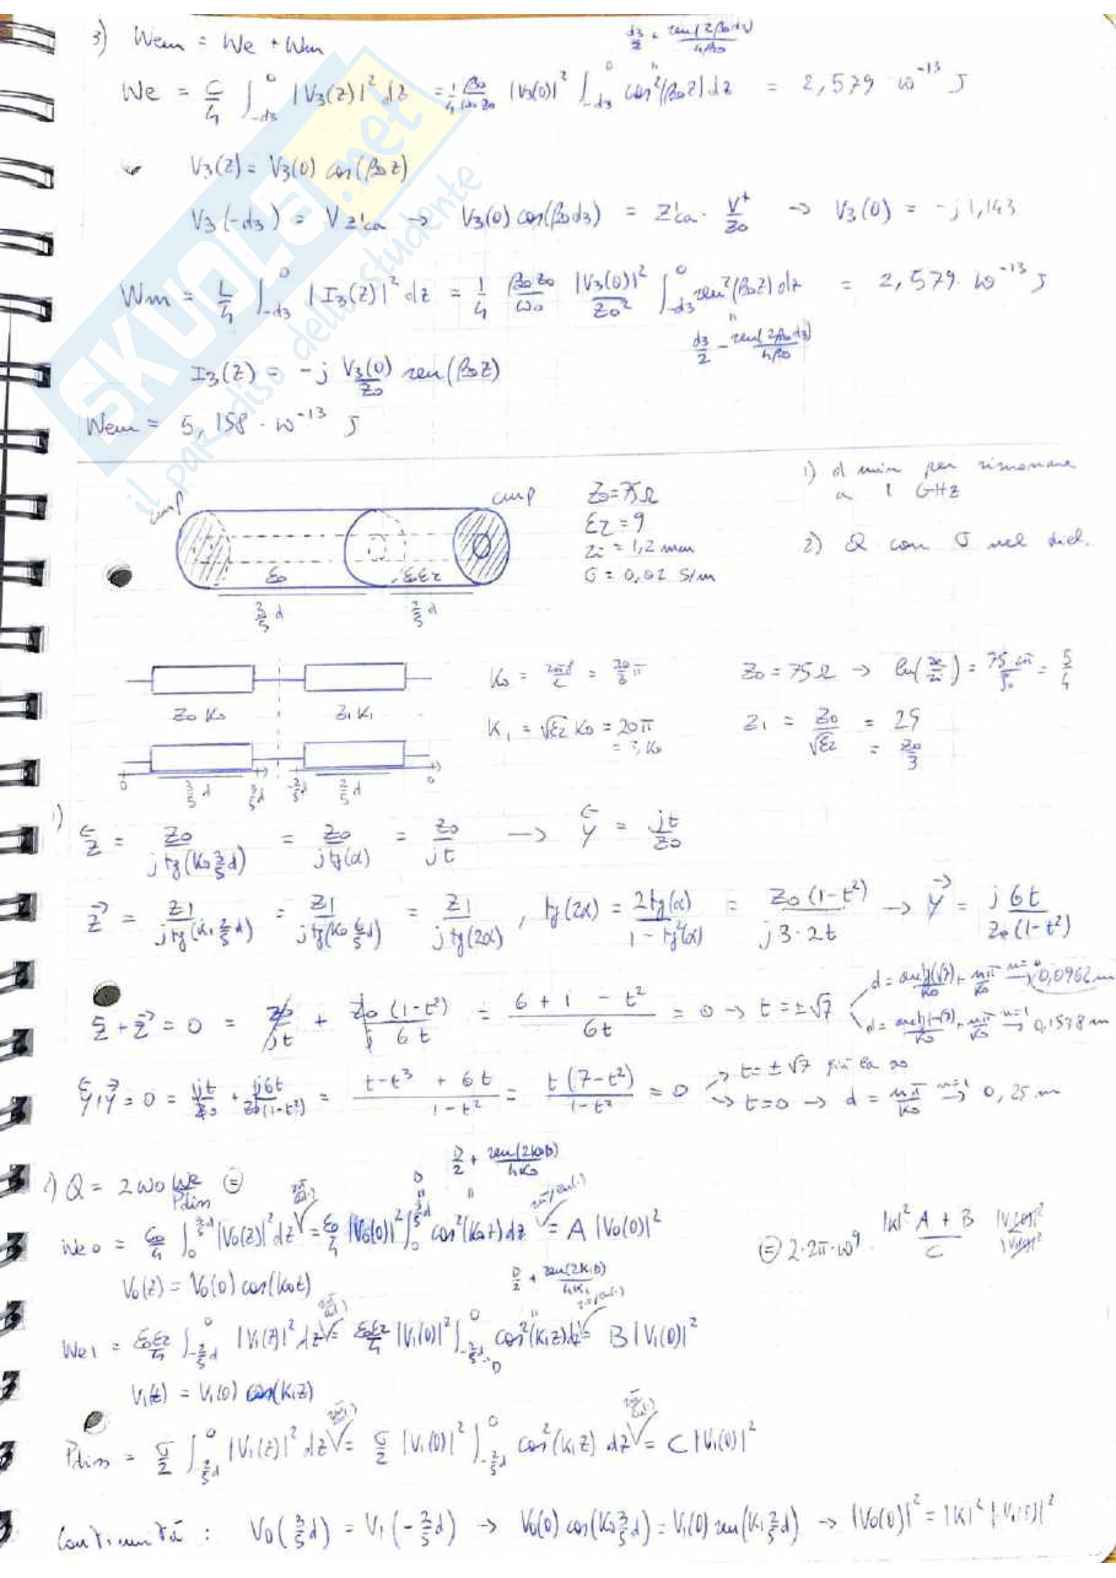 3) Wem = We + Wm
d3/2 + sen(2β0d3)/4β0
We = C/4 ∫_{-d3}^{0} |V3(z)|² dz = 1/4 β0/(ω0 Z0) |V3(0)|² ∫_{-d3}^{0} cos²(β0z) dz = 2,579 10^-13 J
V3(z) = V3(0) cos(β0z)
V3(-d3) = V z'ca → V3(0) cos(β0d3) = Z'ca · V⁺/Z0 → V3(0) = -j1,143
Wm = L/4 ∫_{-d3}^{0} |I3(z)|² dz = 1/4 β0Z0/ω0 |V3(0)|²/Z0² ∫_{-d3}^{0} sen²(β0z) dz = 2,579· 10^-13 J
d3/2 - sen(2β0d3)/4β0
I3(z) = -j V3(0)/Z0 sen(β0z)
Wem = 5,158 · 10^-13 J
SKUOLA.net
il paradiso dello studente
cmp
cmp
ε0
ε0εr
3/5 d
2/5 d
Z0 = 75Ω
εr = 9
ri = 1,2 mm
σ = 0,02 S/m
1) d min per risonare
a 1 GHz
2) Q con σ nel diel.
Z0 K0
Z1 K1
0
3/5 d
3/5 d
-2/5 d
2/5 d
0
K0 = 2πf/c = 20/3 π
K1 = √εr K0 = 20π
= 3K0
Z0 = 75Ω → ln(re/ri) = 75·2π/ζ0 = 5/4
Z1 = Z0/√εr = 25
= Z0/3
1)
Z← = Z0/(j tg(K0 3/5 d)) = Z0/(j tg(α)) = Z0/(jt) → Y← = jt/Z0
Z→ = Z1/(j tg(K1 2/5 d)) = Z1/(j tg(K0 6/5 d)) = Z1/(j tg(2α)) , tg(2α) = 2tg(α)/(1 - tg²(α)) = Z0(1-t²)/(j3·2t) → Y→ = j6t/(Z0(1-t²))
Z← + Z→ = 0 = Z0/(jt) + Z0(1-t²)/(j6t) = (6 + 1 - t²)/6t = 0 → t = ±√7
d = arctg(√7)/K0 + nπ/K0 n=0 → 0,0962 m
d = arctg(-√7)/K0 + nπ/K0 n=1 → 0,1538 m
Y← + Y→ = 0 = jt/Z0 + j6t/(Z0(1-t²)) = (t - t³ + 6t)/(1-t²) = t(7-t²)/(1-t²) = 0
→ t = ±√7 già
→ t=0 → d = nπ/K0 n=1 → 0,25 m
2) Q = 2ω0 We/Pdiss ⊜
D/2 + sen(2K0D)/4K0
We0 = ε0/4 ∫_{0}^{3/5 d} |V0(z)|² dz = ε0/4 |V0(0)|² ∫_{0}^{3/5 d} cos²(K0z) dz = A |V0(0)|²
⊜ 2·2π·10⁹ · (|K|² A + B)/C |V1(0)|²/|V1(0)|²
V0(z) = V0(0) cos(K0z)
D/2 + sen(2K1D)/4K1
We1 = ε0εr/4 ∫_{-2/5 d}^{0} |V1(z)|² dz = ε0εr/4 |V1(0)|² ∫_{-2/5 d}^{0} cos²(K1z) dz = B |V1(0)|²
V1(z) = V1(0) cos(K1z)
Pdiss = σ/2 ∫_{-2/5 d}^{0} |V1(z)|² dz = σ/2 |V1(0)|² ∫_{-2/5 d}^{0} cos²(K1z) dz = C |V1(0)|²
Continuità : V0(3/5 d) = V1(-2/5 d) → V0(0) cos(K0 3/5 d) = V1(0) sen(K1 2/5 d) → |V0(0)|² = |K|² |V1(0)|²